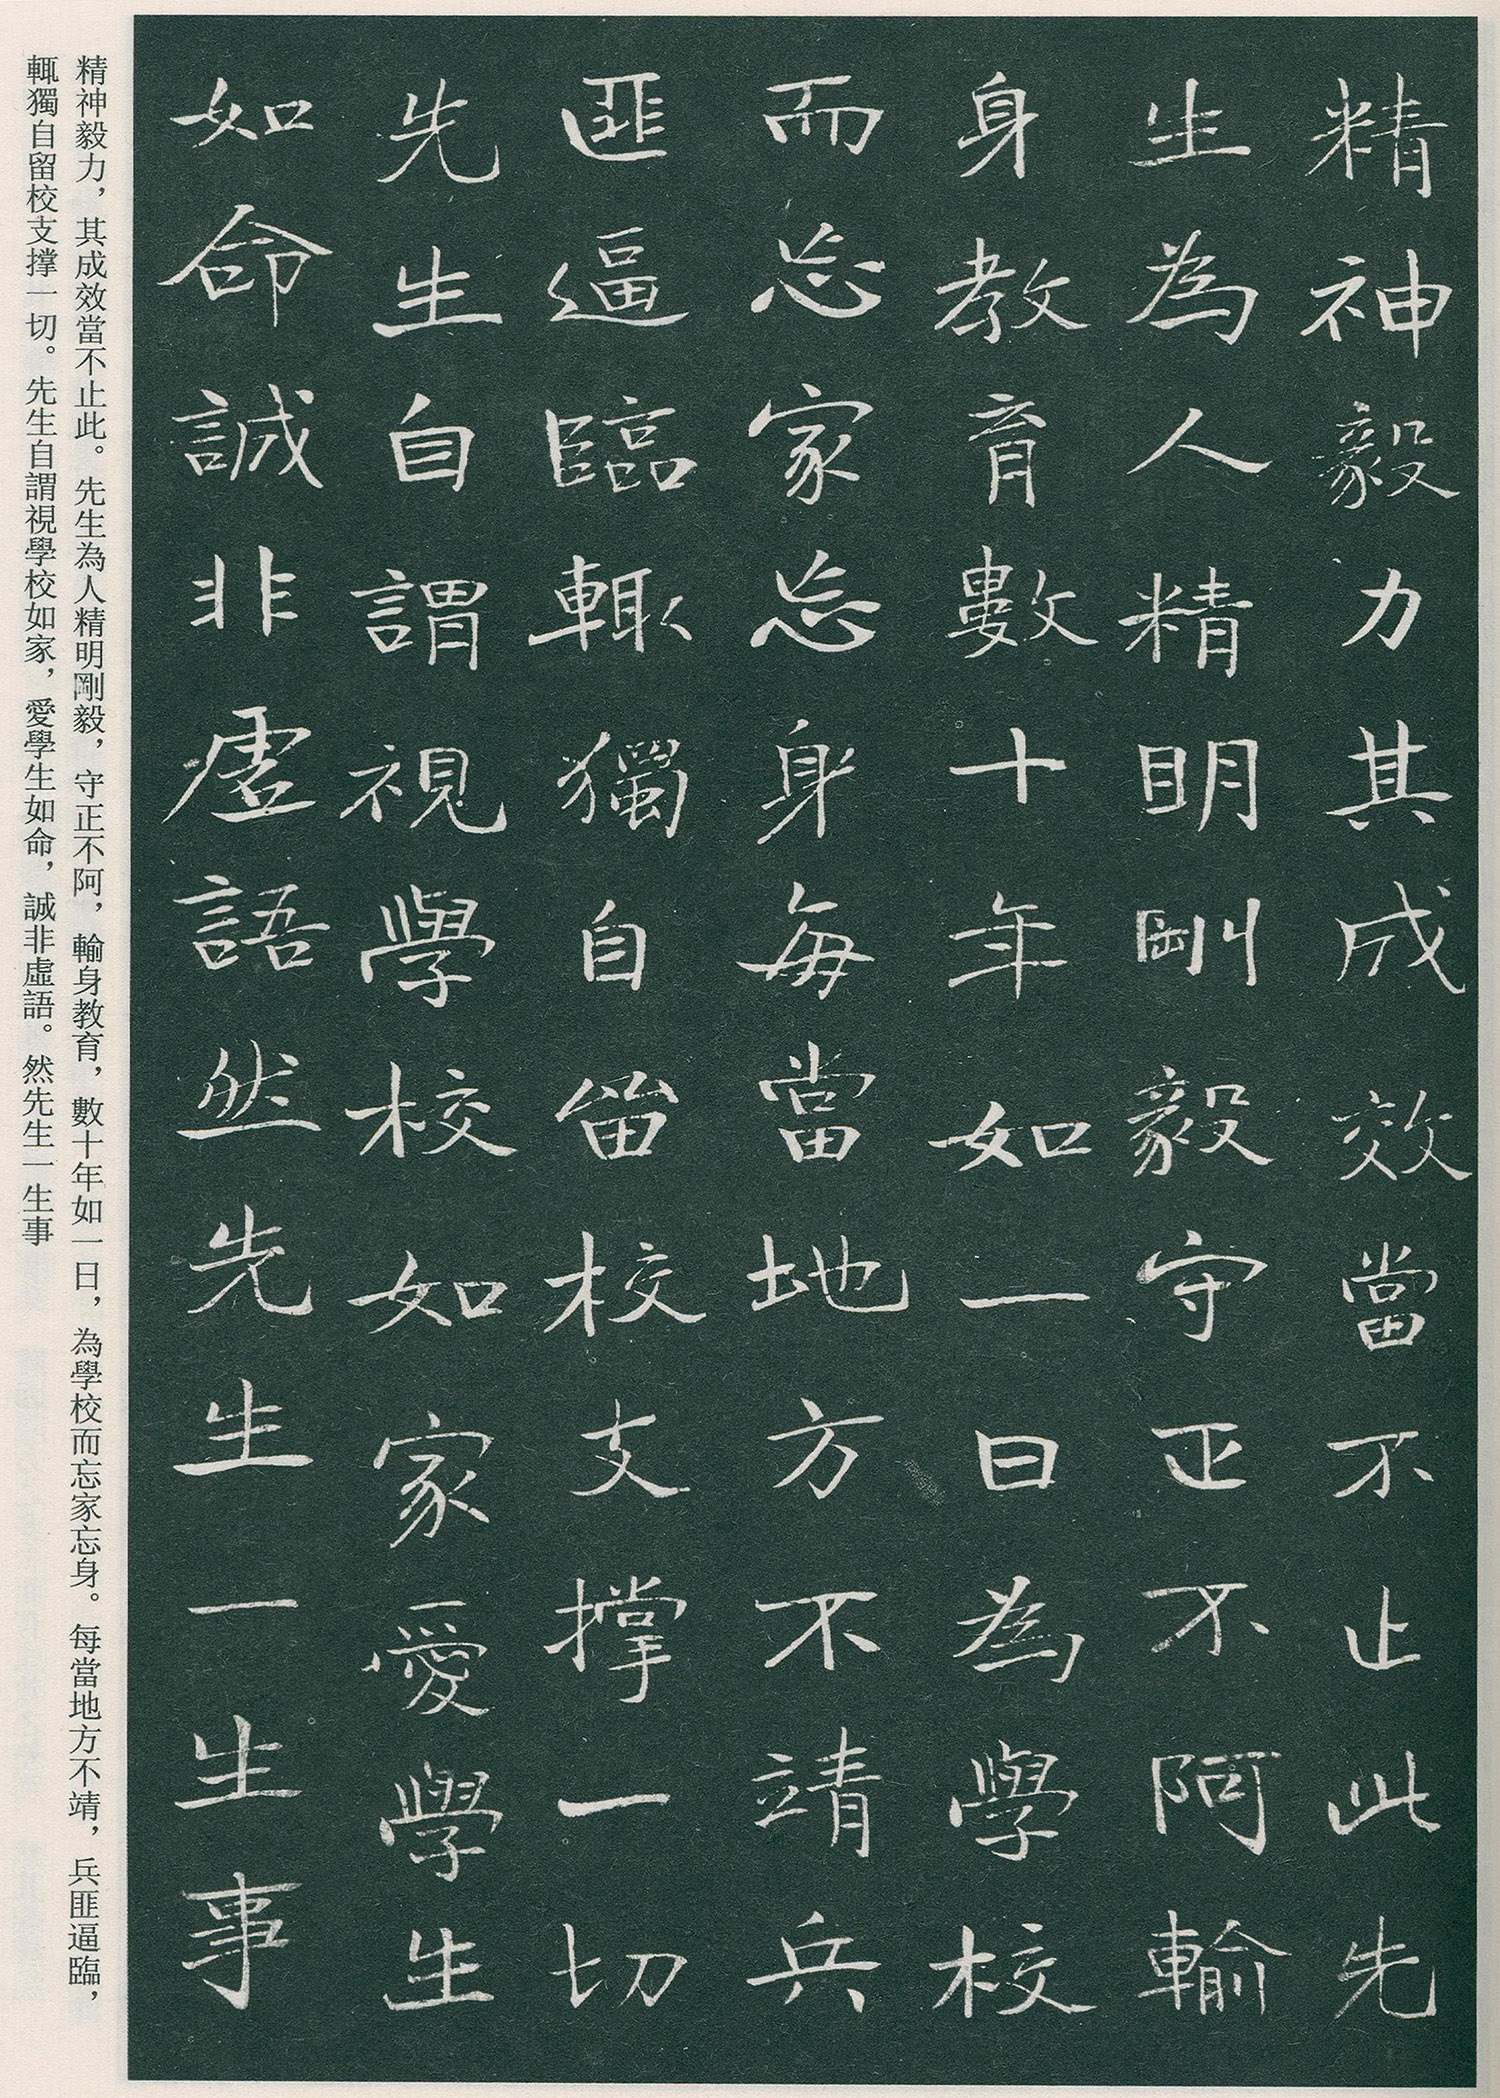 精神毅力其成效當不止此先
生為人精明剛毅守正不阿輸
身教育數十年如一日為學校
而忘家忘身每當地方不靖兵
匪逼臨輒獨自留校支撐一切
先生自謂視學校如家愛學生
如命誠非虛語然先生一生事
精神毅力，其成效當不止此。先生為人精明剛毅，守正不阿，輸身教育，數十年如一日，為學校而忘家忘身。每當地方不靖，兵匪逼臨，
輒獨自留校支撐一切。先生自謂視學校如家，愛學生如命，誠非虛語。然先生一生事